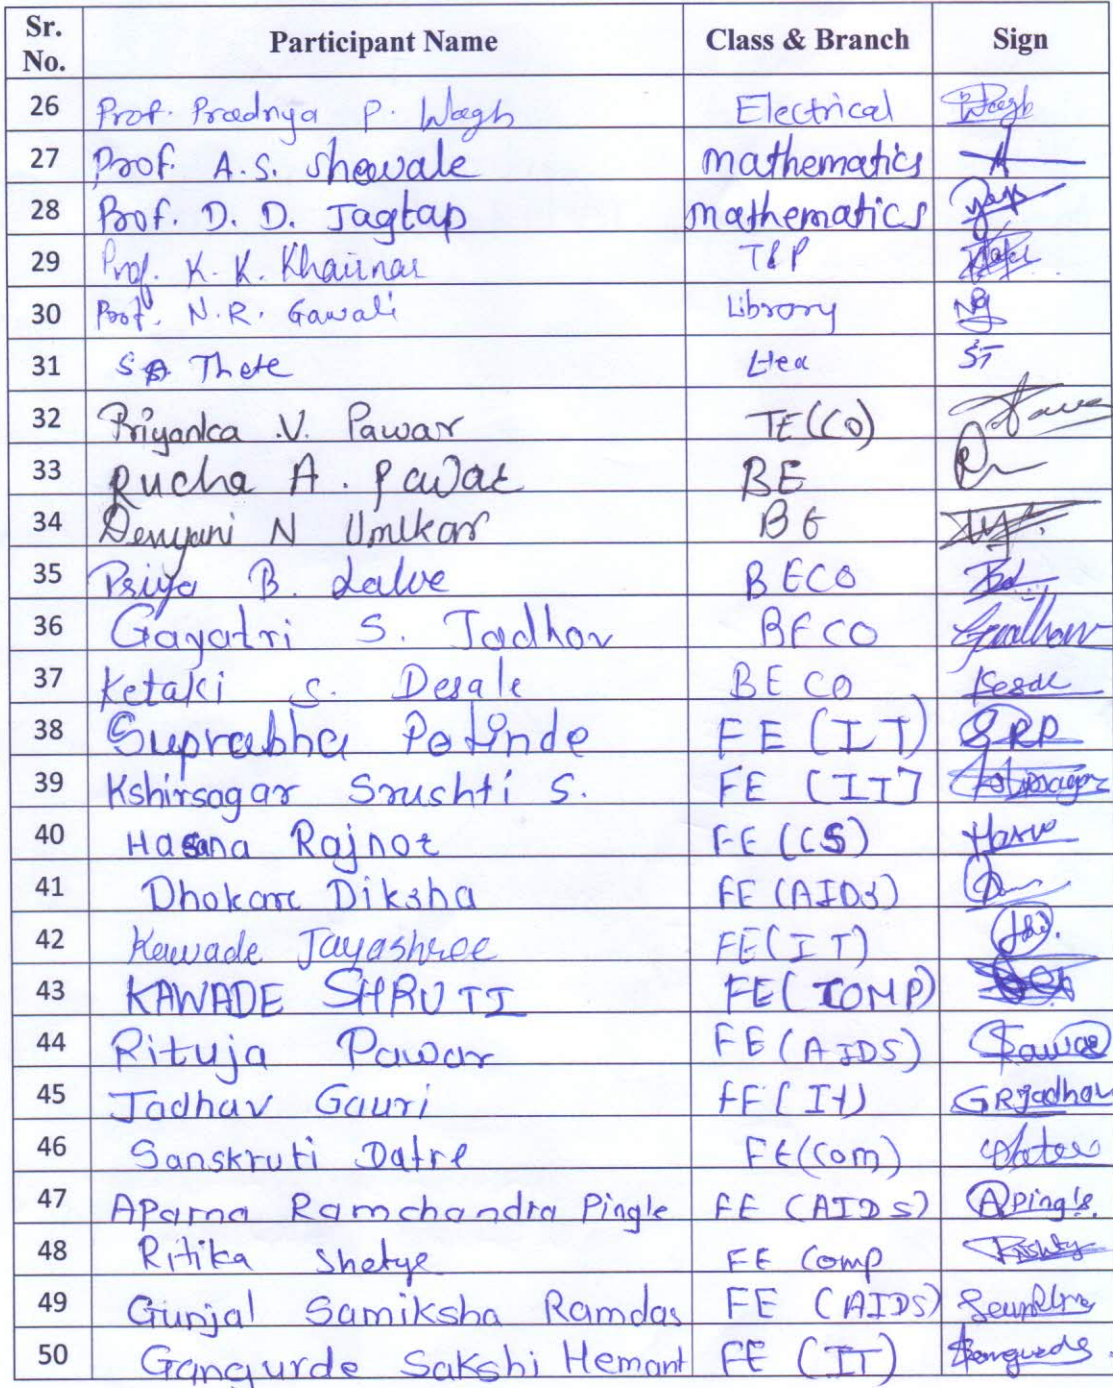 Sr. No. Participant Name Class & Branch Sign
26 Prof. Pradnya P. Wagh Electrical Wagh
27 Prof. A.S. Shewale mathematics
28 Prof. D. D. Jagtap mathematics
29 Prof. K. K. Khairnar T&P
30 Prof. N.R. Gawali Library NG
31 Thete ST
32 Priyanka .V. Pawar TE(CO)
33 Rucha A. Pawar BE
34 N BE
35 Priya B. Lalve BECO
36 Gayatri S. Jadhav BECO
37 Ketaki S. Desale BECO
38 Suprabha FE (IT) SRP
39 Kshirsagar Srushti S. FE (IT)
40 Rajnot FE (CS)
41 Dhokare Diksha FE (AIDS)
42 Kawade Jayashree FE(IT)
43 KAWADE SHRUTI FE(COMP)
44 Rituja Pawar FE (AIDS)
45 Jadhav Gauri FE(IT) GRJadhav
46 Sanskruti Datre FE(Com)
47 Aparna Ramchandra Pingle FE (AIDS) APingle
48 Ritika Shetye FE Comp
49 Gunjal Samiksha Ramdas FE (AIDS)
50 Gangurde Sakshi Hemant FE (IT)